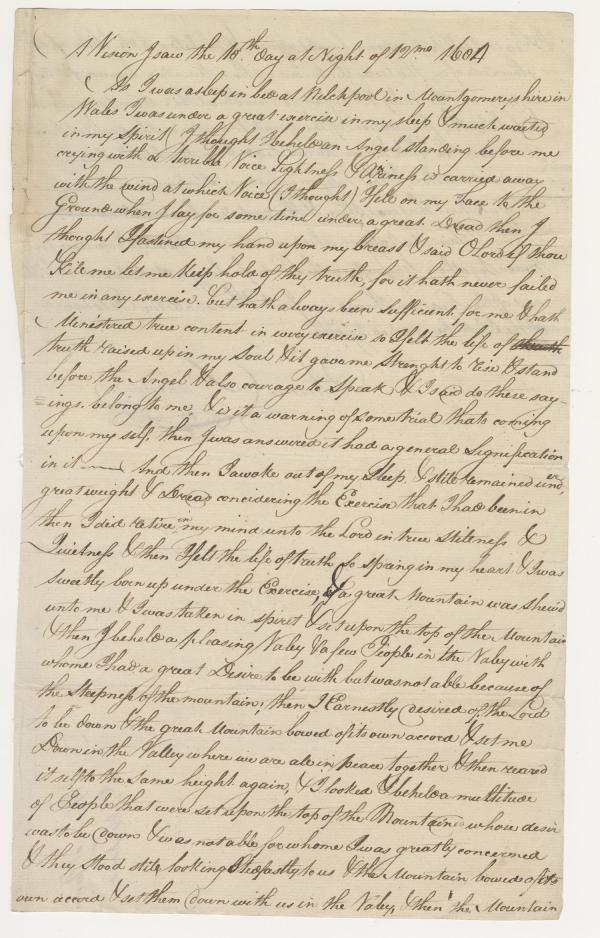 A Vision I saw the 18th day at Night of 12mo 1684
As I was asleep in bed at Welchpool in Mountgomeryshire in
Wales I was under a great exercise in my sleep & much waited
in my Spirit (I thought I beheld an Angel standing before me
crying with a terrible Voice Lightness & Airiness is carried away
with the wind at which Voice (I thought) I fell on my Face to the
Ground when I lay for some time under a great Dread then I
thought I fastened my hand upon my breast & said O Lord if thou
Kile me let me Keep hold of thy truth, for it hath never failed
me in any exercise. but hath always been Sufficient for me & hath
Ministered true content in every exercise so I felt the life of
truth raised up in my Soul & it gave me Strenght to rise & stand
before the Angel & also courage to Speak & I said do these say-
=ings. belong to me, & is it a warning of some trial thats coming
upon my self, then I was answered it had a general Signification
in it — And then I awoke out of my Sleep, & stile remained under
great weight & Dread concidering the Exercise that I had been in
then I did retire in my mind unto the Lord in true Stileness &
Quietness & then I felt the life of truth So spring in my heart & I was
sweetly born up under the Exercise, & a great Mountain was shewd
unto me & I was taken in spirit & set upon the top of the Mountain
& then I beheld a pleasing Valey & a few People in the Valey with
whome I had a great Desire to be with but was not able because of
the Steepness of the mountain, then I Earnestly desired of the Lord
to be down & the great Mountain bowed of its own accord & set me
Down in the Valley where we are ale in peace together & then reared
it self to the same height again, & I looked & beheld a multitude
of People that were set upon the top of the Mountain whose desir
was to be down & was not able for whome I was greatly concerned
& they stood stile, looking Stedfastly to us & the Mountain bowed of its
own accord & set them down with us in the Valey, & then the Mountain